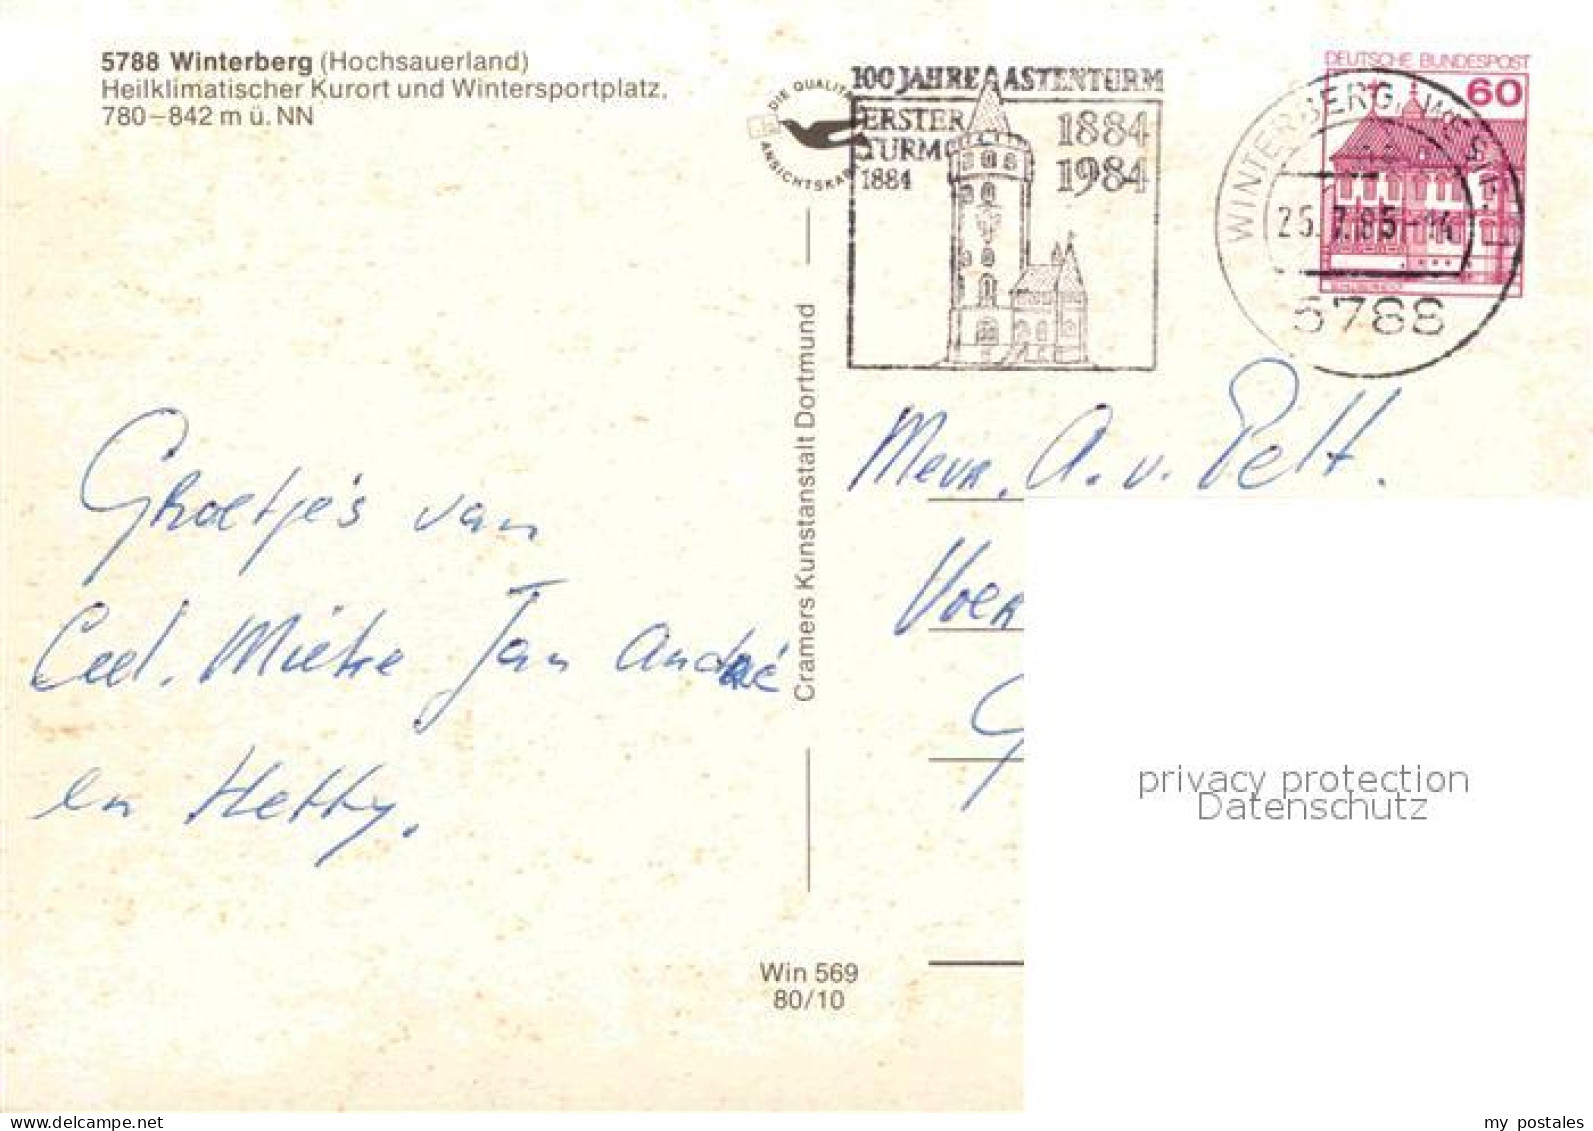 5788 Winterberg (Hochsauerland)
Heilklimatischer Kurort und Wintersportplatz,
780–842 m ü. NN
DIE QUALITÄ
ANSICHTSKA
100 JAHRE ASTENTURM
ERSTER
TURM
1884
1884
1984
DEUTSCHE BUNDESPOST
60
WINTERBERG, WESTF
25.7.85-14
5788
Groetjes van
Ceel. Mieke Jan André
en Hetty.
Cramers Kunstanstalt Dortmund
Mevr. A. v. Pelt.
Win 569
80/10
privacy protection
Datenschutz
www.delcampe.net
my_postales